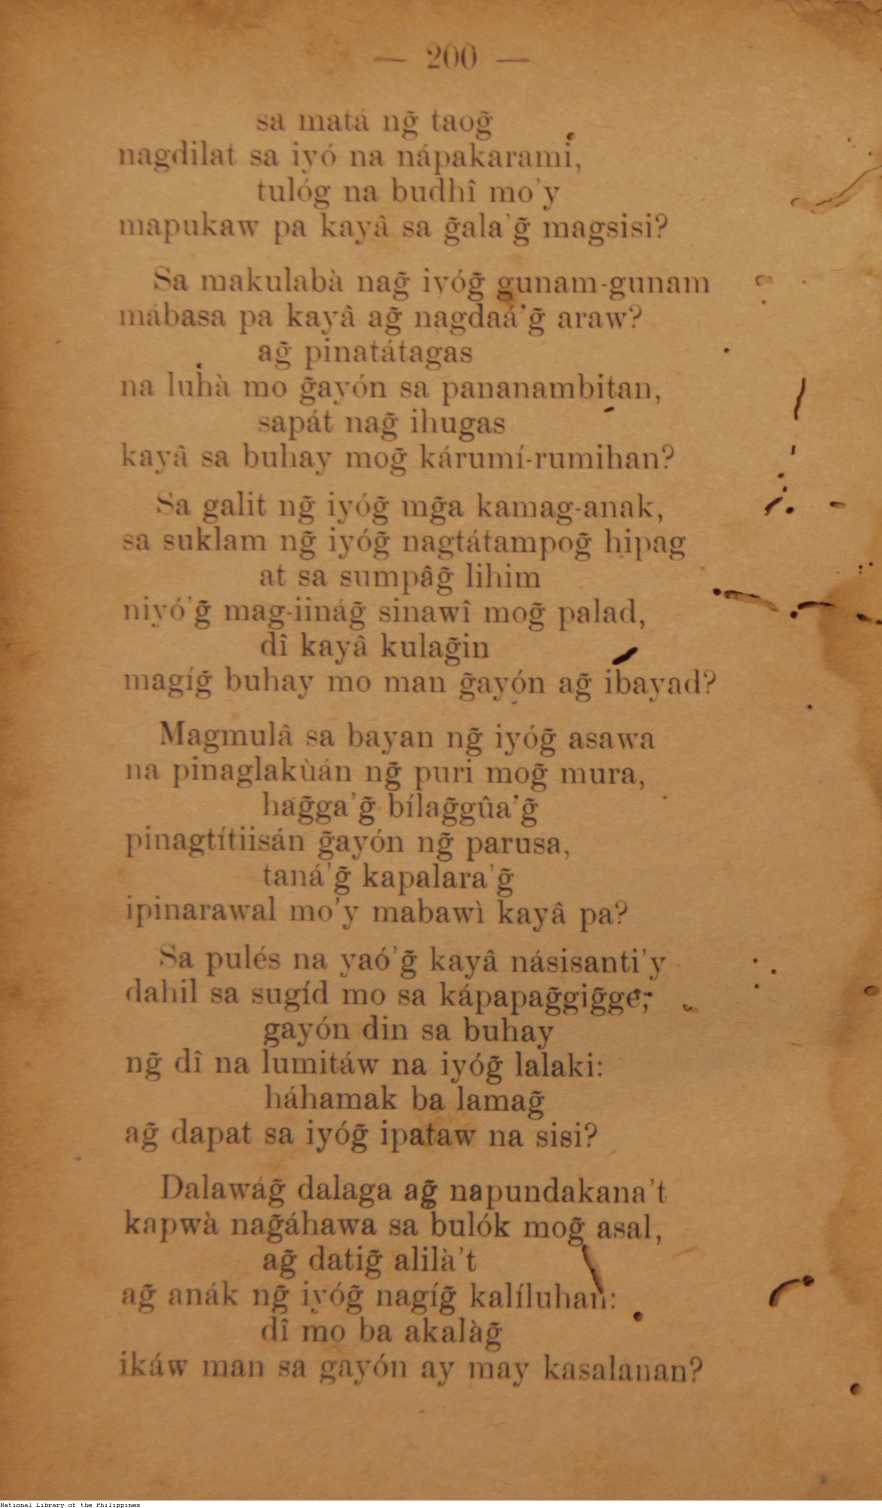 — 200 —
sa matá ng̃ taog̃
nagdilat sa iyó na nápakarami,
tulóg na budhî mo'y
mapukaw pa kayâ sa g̃ala'g̃ magsisi?
Sa makulabà nag̃ iyóg̃ gunam-gunam
mábasa pa kayâ ag̃ nagdaá'g̃ araw?
ag̃ pinatátagas
na luhà mo g̃ayón sa pananambitan,
sapát nag̃ ihugas
kayâ sa buhay mog̃ kárumí-rumihan?
Sa galit ng̃ iyóg̃ mg̃a kamag-anak,
sa suklam ng̃ iyóg̃ nagtátampog̃ hipag
at sa sumpâg̃ lihim
niyó'g̃ mag-iinág̃ sinawî mog̃ palad,
dî kayâ kulag̃in
magíg̃ buhay mo man g̃ayón ag̃ ibayad?
Magmulâ sa bayan ng̃ iyóg̃ asawa
na pinaglakùán ng̃ puri mog̃ mura,
hag̃ga'g̃ bílag̃gûa'g̃
pinagtítiisán g̃ayón ng̃ parusa,
taná'g̃ kapalara'g̃
ipinarawal mo'y mabawì kayâ pa?
Sa pulés na yaó'g̃ kayâ násisanti'y
dahil sa sugíd mo sa kápapag̃gig̃ge;
gayón din sa buhay
ng̃ dî na lumitáw na iyóg̃ lalaki:
háhamak ba lamag̃
ag̃ dapat sa iyóg̃ ipataw na sisi?
Dalawág̃ dalaga ag̃ napundakana't
kapwà nag̃áhawa sa bulók mog̃ asal,
ag̃ datig̃ alilà't
ag̃ anák ng̃ iyóg̃ nagíg̃ kalíluhan:
dî mo ba akalàg̃
ikáw man sa gayón ay may kasalanan?
National Library of the Philippines